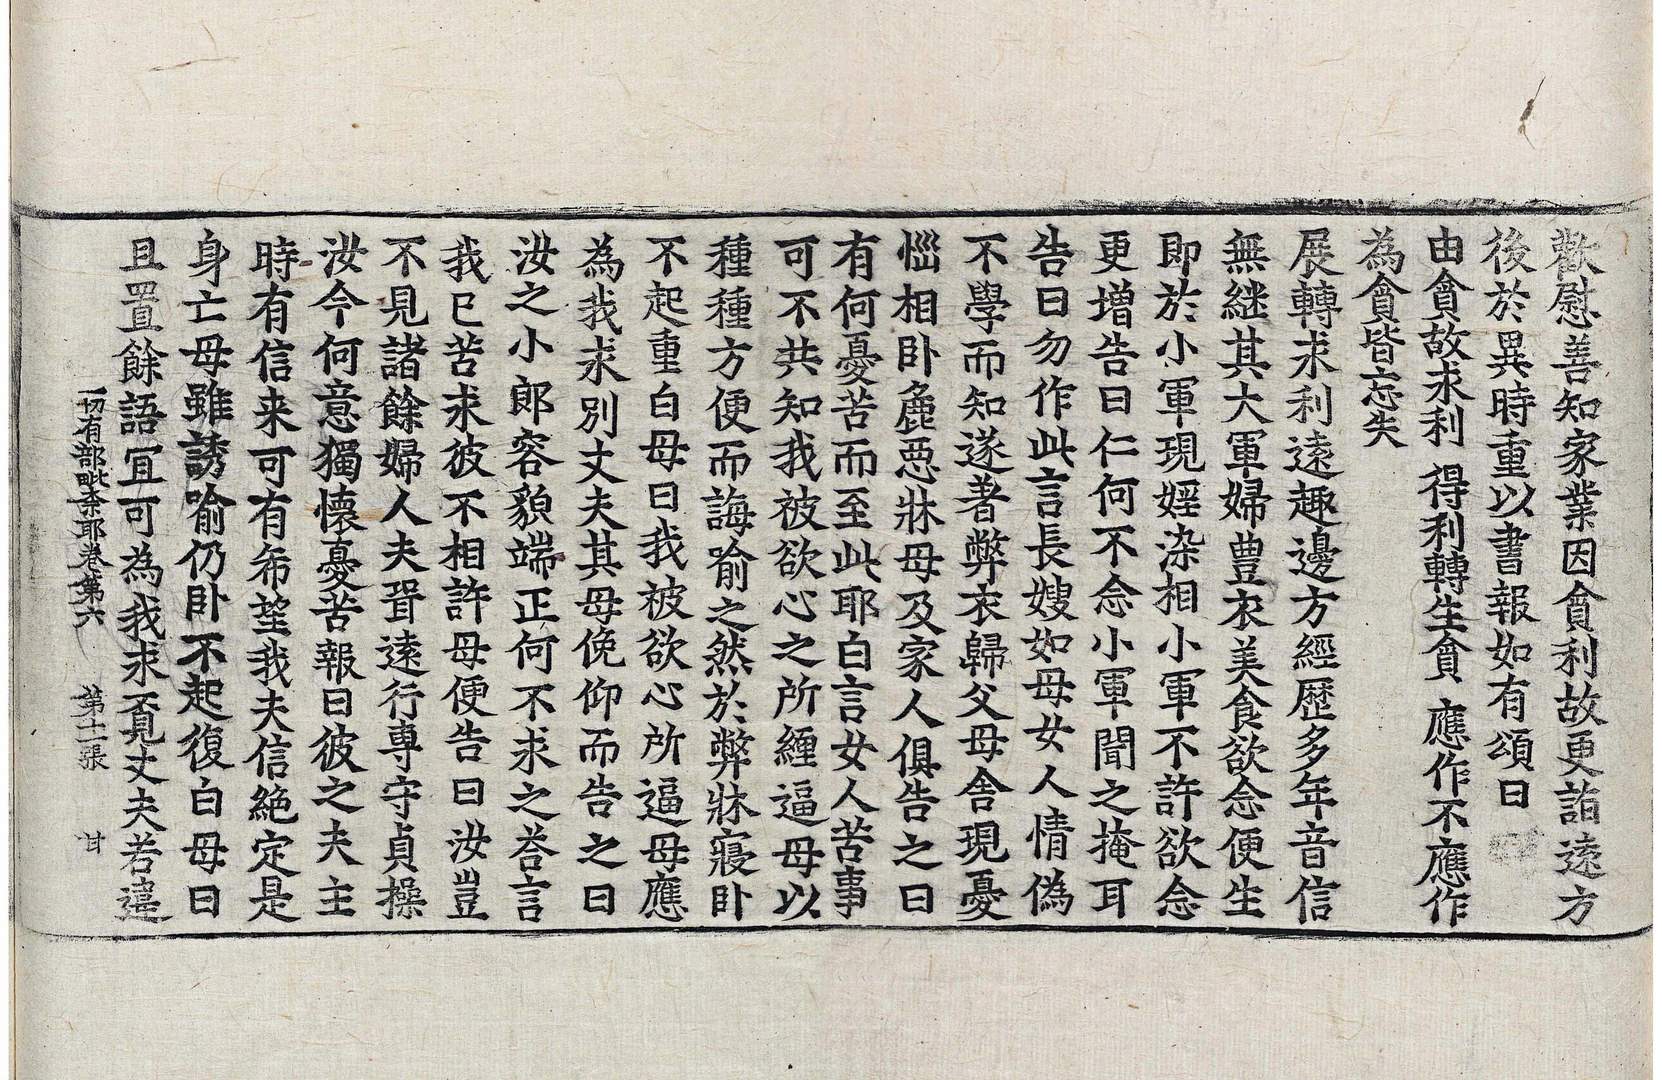 歡慰善知家業因貪利故更詣遠方
後於異時重以書報如有頌曰
由貪故求利　得利轉生貪　應作不應作
為貪皆忘失
展轉求利遠趣邊方經歷多年音信
無継其大軍婦豊衣美食欲念便生
即於小軍現婬染相小軍不許欲念
更增告曰仁何不念小軍聞之掩耳
告曰勿作此言長嫂如母女人情偽
不學而知遂著弊衣歸父母舍現憂
惱相卧麁惡牀母及家人俱告之曰
有何憂苦而至此耶白言女人苦事
可不共知我被欲心之所纏逼母以
種種方便而誨喻之然於弊牀寢卧
不起重白母曰我被欲心所逼母應
為我求別丈夫其母俛仰而告之曰
汝之小郎容貌端正何不求之荅言
我已苦求彼不相許母便告曰汝豈
不見諸餘婦人夫壻遠行專守貞操
汝今何意獨懷憂苦報曰彼之夫主
時有信来可有希望我夫信絕定是
身亡母雖誘喻仍卧不起復白母曰
且置餘語冝可為我求覔丈夫若違
一切有部毗柰耶卷第六　第十一張　甘